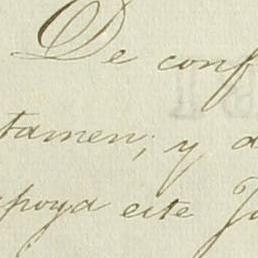 De conf
tamen; y a
apoya este Ju